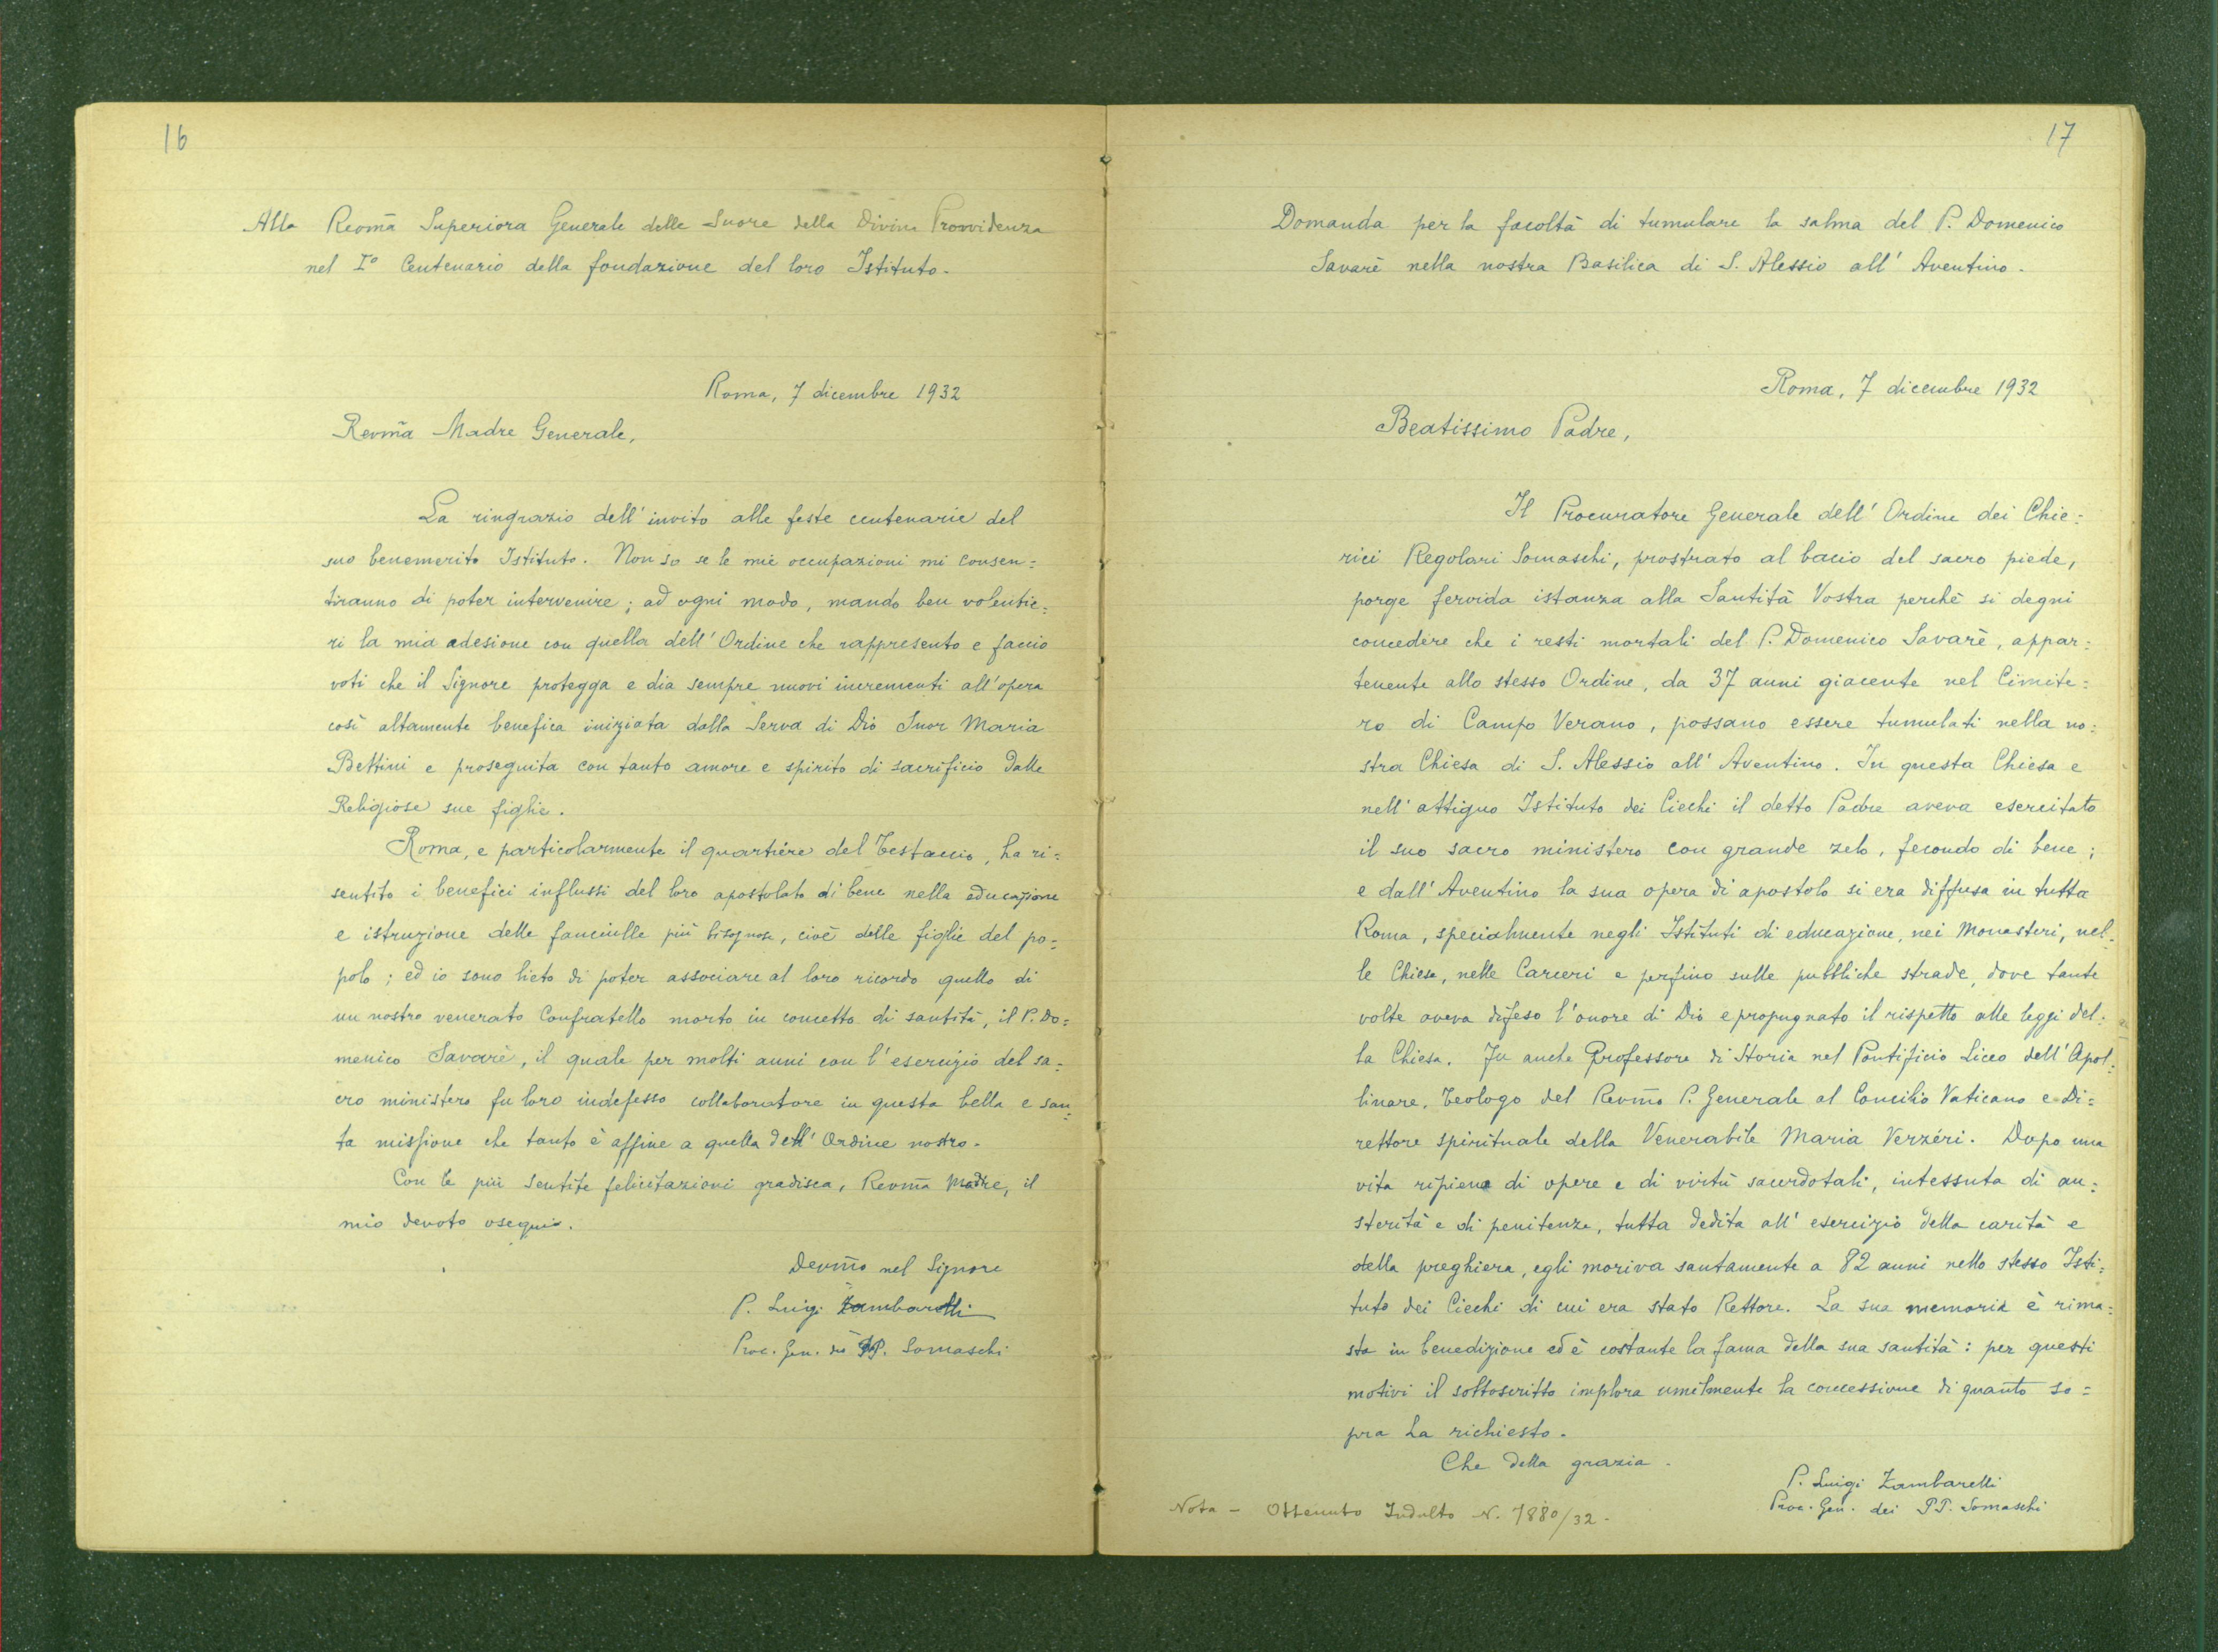 16
Alla Revm̃a Superiora Generale delle Suore della Divina Provvidenza
nel I° Centenario della fondazione del loro Istituto.
Roma, 7 dicembre 1932
Revm̃a Madre Generale,
La ringrazio dell'invito alle feste centenarie del
suo benemerito Istituto. Non so se le mie occupazioni mi consen=
tiranno di poter intervenire; ad ogni modo, mando ben volentie=
ri la mia adesione con quella dell'Ordine che rappresento e faccio
voti che il Signore protegga e dia sempre nuovi incrementi all'opera
così altamente benefica iniziata dalla Serva di Dio Suor Maria
Bettini e proseguita con tanto amore e spirito di sacrificio dalle
Religiose sue figlie.
Roma, e particolarmente il quartiere del Testaccio, ha ri=
sentito i benefici influssi del loro apostolato di bene nella educazione
e istruzione delle fanciulle più bisognose, cioè delle figlie del po=
polo; ed io sono lieto di poter associare al loro ricordo quello di
un nostro venerato Confratello morto in concetto di santità, il P. Do=
menico Savarè, il quale per molti anni con l'esercizio del sa=
cro ministero fu loro indefesso collaboratore in questa bella e san=
ta missione che tanto è affine a quella dell'Ordine nostro.
Con le più sentite felicitazioni gradisca, Revm̃a Madre, il
mio devoto ossequio.
Devm̃o nel Signore
P. Luigi Zambarelli
Proc. Gen. dei PP. Somaschi
17
Domanda per la facoltà di tumulare la salma del P. Domenico
Savarè nella nostra Basilica di S. Alessio all'Aventino.
Roma, 7 dicembre 1932
Beatissimo Padre,
Il Procuratore Generale dell'Ordine dei Chie=
rici Regolari Somaschi, prostrato al bacio del sacro piede,
porge fervida istanza alla Santità Vostra perchè si degni
concedere che i resti mortali del P. Domenico Savarè, appar=
tenente allo stesso Ordine, da 37 anni giacente nel Cimite=
ro di Campo Verano, possano essere tumulati nella no=
stra Chiesa di S. Alessio all'Aventino. In questa Chiesa e
nell'attiguo Istituto dei Ciechi il detto Padre aveva esercitato
il suo sacro ministero con grande zelo, fecondo di bene;
e dall'Aventino la sua opera di apostolo si era diffusa in tutta
Roma, specialmente negli Istituti di educazione, nei Monasteri, nel=
le Chiese, nelle Carceri e perfino sulle pubbliche strade, dove tante
volte aveva difeso l'onore di Dio e propugnato il rispetto alle leggi del=
la Chiesa. Fu anche Professore di Storia nel Pontificio Liceo dell'Apol=
linare, Teologo del Revm̃o P. Generale al Concilio Vaticano e Di=
rettore spirituale della Venerabile Maria Verzéri. Dopo una
vita ripiena di opere e di virtù sacerdotali, intessuta di au=
sterità e di penitenza, tutta dedita all'esercizio della carità e
della preghiera, egli moriva santamente a 82 anni nello stesso Isti=
tuto dei Ciechi di cui era stato Rettore. La sua memoria è rima=
sta in benedizione ed è costante la fama della sua santità: per questi
motivi il sottoscritto implora umilmente la concessione di quanto so=
pra ha richiesto.
Che della grazia.
P. Luigi Zambarelli
Proc. Gen. dei PP. Somaschi
Nota - Ottenuto Indulto N. 7880/32.